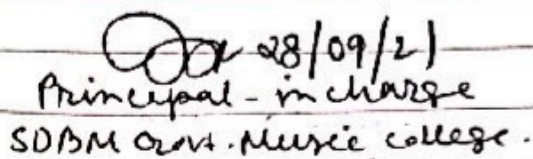 28/09/21
Principal - in charge
SDBM Govt. Music college.